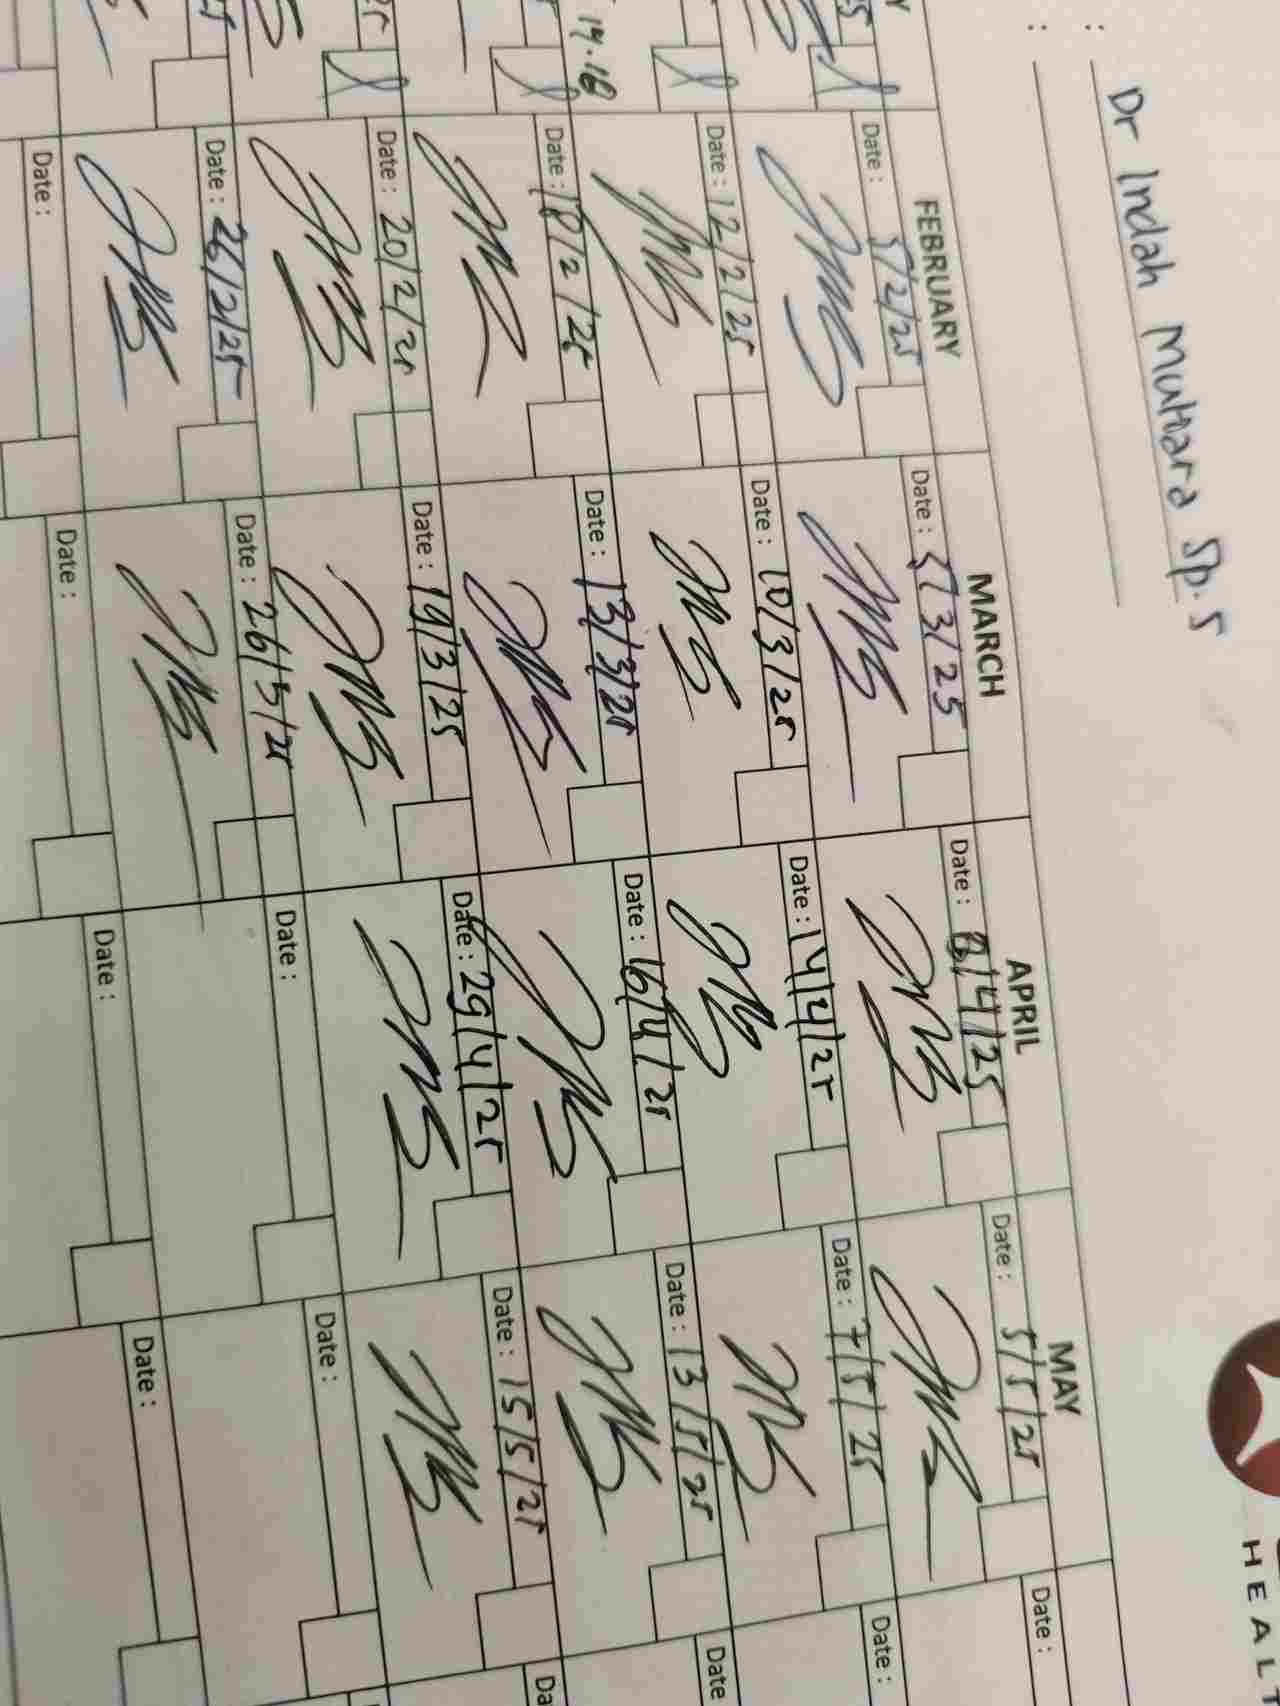 Dr Indah Mutiara Sp.S
HEALT
FEBRUARY MARCH APRIL MAY
Date : 5/2/25 Date : 5/3/25 Date : 8/4/25 Date : 5/5/25 Date :
Date : 12/2/25 Date : 10/3/25 Date : 14/4/25 Date : 7/5/25 Date :
14.18 Date : 18/2/25 Date : 13/3/25 Date : 16/4/25 Date : 13/5/25 Date
Date : 20/2/25 Date : 19/3/25 Date : 29/4/25 Date : 15/5/25 Da
Date : 26/2/25 Date : 26/3/25 Date : Date :
Date : Date : Date : Date :